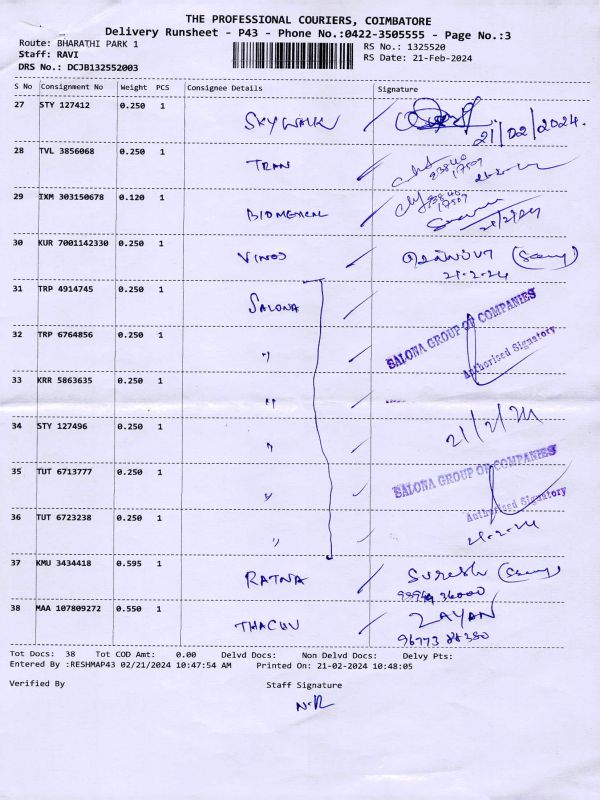 THE PROFESSIONAL COURIERS, COIMBATORE
Delivery Runsheet - P43 - Phone No.:0422-3505555 - Page No.:3
Route: BHARATHI PARK 1
RS No.: 1325520
Staff: RAVI
RS Date: 21-Feb-2024
DRS No.: DCJB132552003
S No Consignment No Weight PCS Consignee Details Signature
27 STY 127412 0.250 1 SKYWALK
21/02/2024.
28 TVL 3856068 0.250 1 TRAN
29 IXM 303150678 0.120 1 BIOMEDICAL
21/2/24
30 KUR 7001142330 0.250 1 VINOJ
21-2-24
31 TRP 4914745 0.250 1 SALONA
SALONA GROUP OF COMPANIES
Authorised Signatory
32 TRP 6764856 0.250 1 "
33 KRR 5863635 0.250 1 "
34 STY 127496 0.250 1 "
21/2/24
35 TUT 6713777 0.250 1 "
SALONA GROUP OF COMPANIES
Authorised Signatory
36 TUT 6723238 0.250 1 "
21-2-24
37 KMU 3434418 0.595 1 RATNA Suresh
38 MAA 107809272 0.550 1 THACHU ZAYAN
Tot Docs: 38 Tot COD Amt: 0.00 Delvd Docs: Non Delvd Docs: Delvy Pts:
Entered By :RESHMAP43 02/21/2024 10:47:54 AM Printed On: 21-02-2024 10:48:05
Verified By Staff Signature
N.R